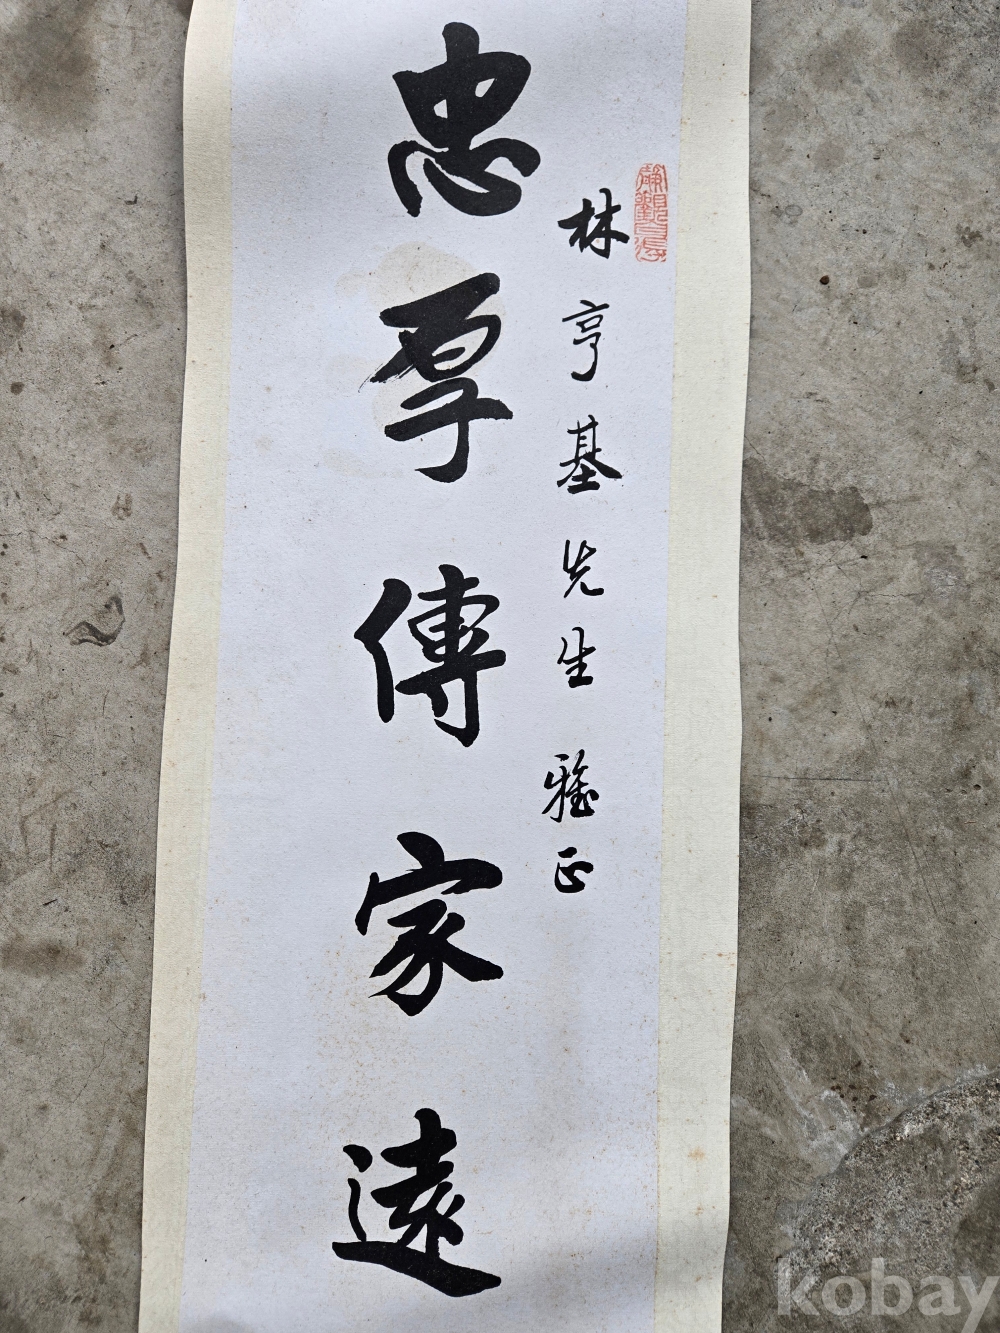 忠厚傳家遠
林亨基先生雅正
kobay